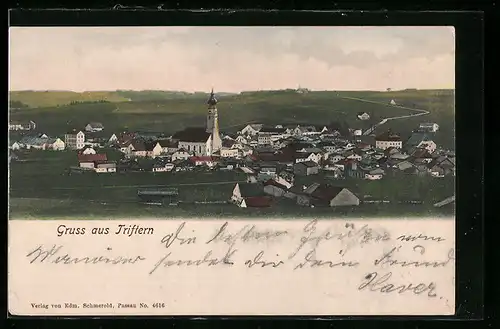 Gruss aus Triftern
die besten Grüße vom
Manöver sendet dir dein Freund
Xaver.
Verlag von Edm. Schmerold, Passau No. 4616